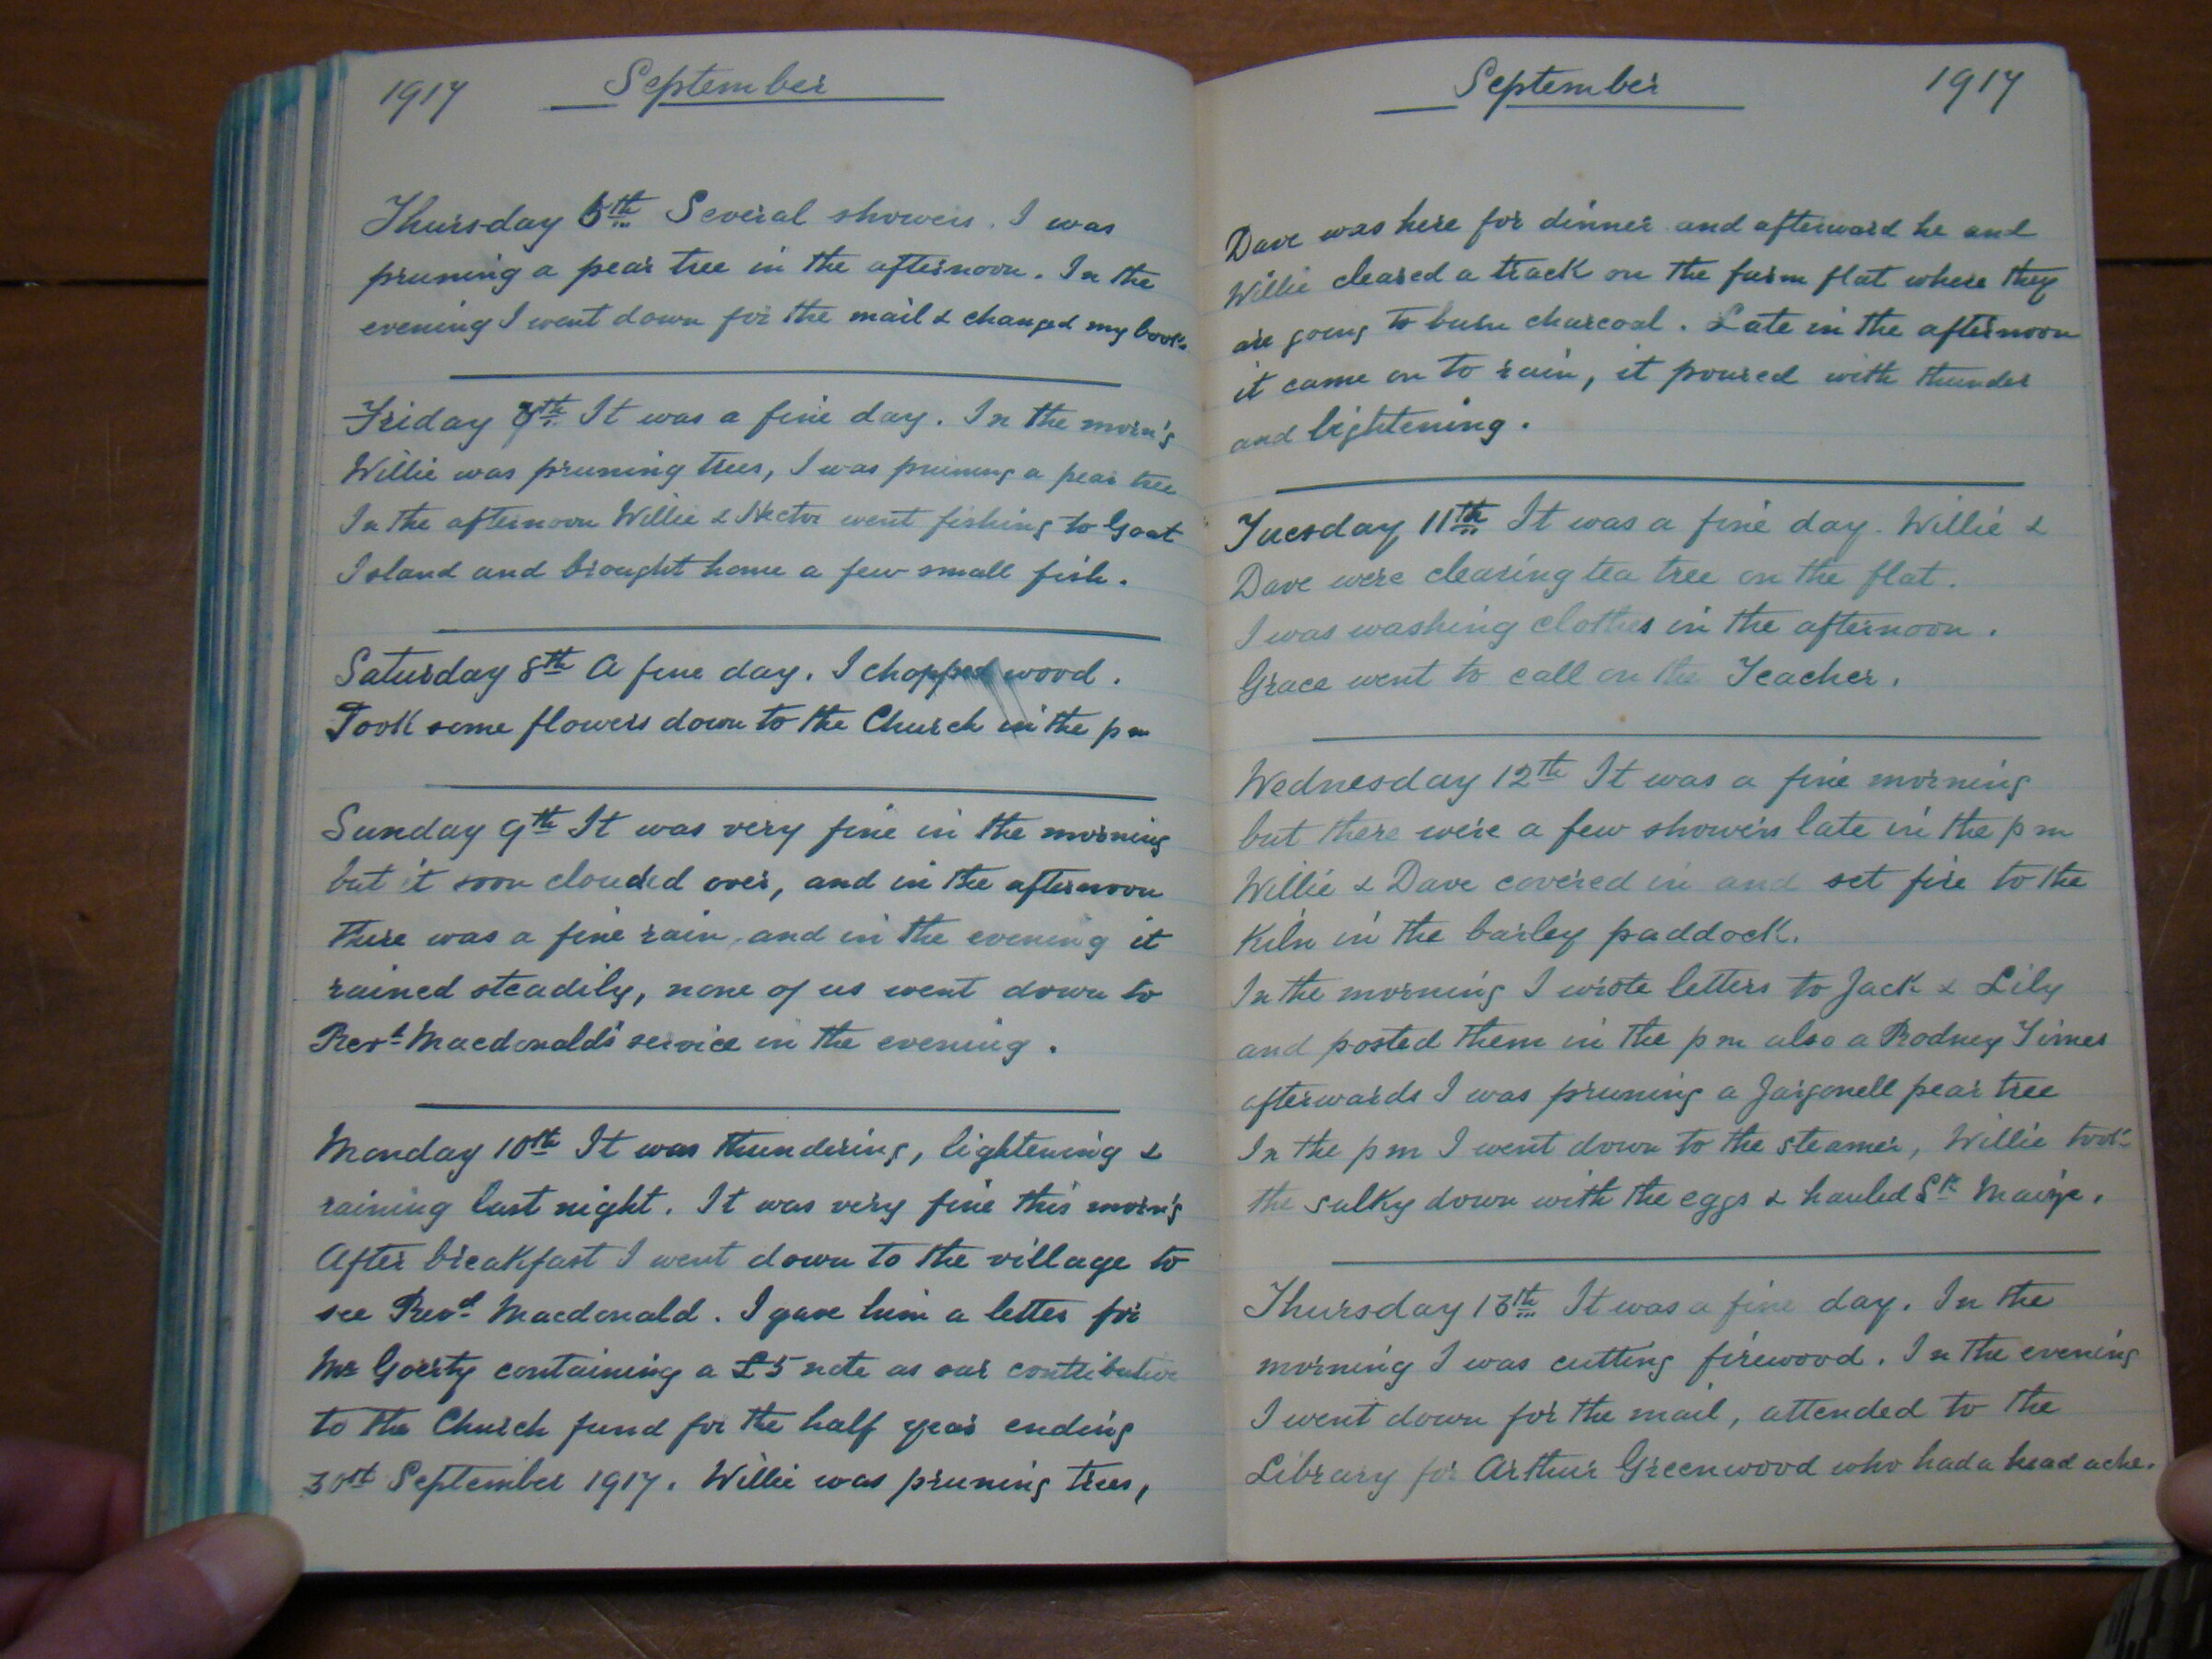 1917 September
Thursday 6th Several showers. I was
pruning a pear tree in the afternoon. In the
evening I went down for the mail & changed my book.
Friday 7th It was a fine day. In the morn'g
Willie was pruning trees, I was pruning a pear tree
In the afternoon Willie & Hector went fishing to Goat
Island and brought home a few small fish.
Saturday 8th A fine day. I chopped wood.
Took some flowers down to the Church in the pm
Sunday 9th It was very fine in the morning
but it soon clouded over, and in the afternoon
there was a fine rain, and in the evening it
rained steadily, none of us went down to
Revd Macdonald's service in the evening.
Monday 10th It was thundering, lightening &
raining last night. It was very fine this morn'g
After breakfast I went down to the village to
see Revd Macdonald. I gave him a letter for
Mr Gorrty containing a £5 note as our contribution
to the Church fund for the half year ending
30th September 1917. Willie was pruning trees,
September 1917
Dave was here for dinner and afterward he and
Willie cleared a track on the farm flat where they
are going to burn charcoal. Late in the afternoon
it came on to rain, it poured with thunder
and lightening.
Tuesday 11th It was a fine day. Willie &
Dave were clearing tea tree on the flat.
I was washing clothes in the afternoon.
Grace went to call on the Teacher.
Wednesday 12th It was a fine morning
but there were a few showers late in the pm
Willie & Dave covered in and set fire to the
Kiln in the barley paddock.
In the morning I wrote letters to Jack & Lily
and posted them in the pm also a Rodney Times
afterwards I was pruning a Jargonell pear tree
In the pm I went down to the steamer, Willie took
the sulky down with the eggs & hauled Sk Maize.
Thursday 13th It was a fine day. In the
morning I was cutting firewood. In the evening
I went down for the mail, attended to the
Library for Arthur Greenwood who had a head ache.